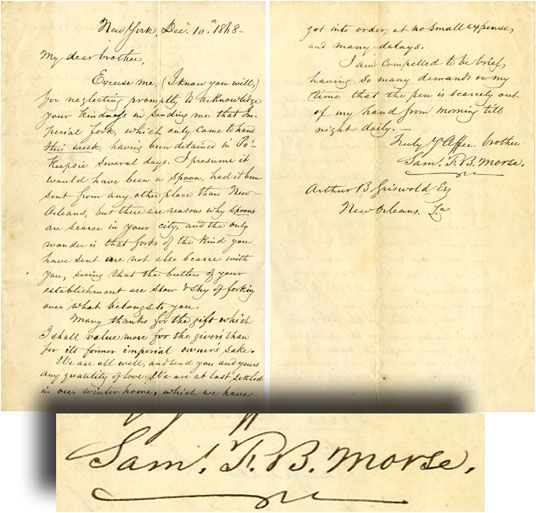 New York, Decr. 10th 1868-
My dear brother,
Excuse me, (I know you will,)
for neglecting promptly to acknowledge
your kindness in sending me that Im-
perial fork, which only came to hand
this week, having been detained in Po'-
keepsie several days. I presume it
would have been a spoon, had it been
sent from any other place than New-
Orleans, but there are reasons why spoons
are scarce in your city, and the only
wonder is that forks of the kind you
have sent are not also scarce with
you, seeing that the butlers of your
establishment are slow & shy of forking
over what belongs to you.
Many thanks for the gift which
I shall value more for the givers than
for its former imperial owner's sake.
We are all well, and send you and yours
any quantity of love. We are at last settled
in our winter home, which we have
got into order, at no small expense,
and many delays.
I am compelled to be brief,
having so many demands on my
time that the pen is scarcely out
of my hand from morning till
night daily.-
Truly Yr Affec. brother
Saml. F. B. Morse.
Arthur B Griswold Esq
New Orleans. La
Saml. F. B. Morse.